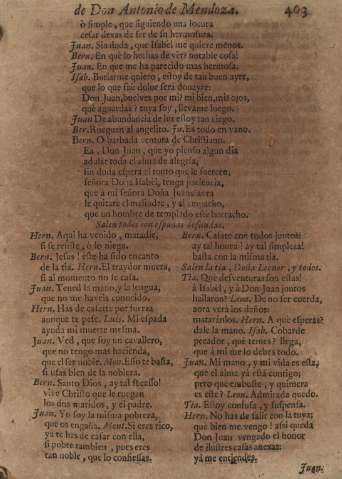 de Don Antonio de Mendoza. 403
ò simple, que siguiendo una locura
cesar dexas de ser de su hermosura.
Juan. Sin duda, que Isabel me quiere menos.
Bern. En què lo hechas de vèr? notable cosa!
Juan. En que me ha parecido mas hermosa.
Isab. Burlarme quiero, estoy de tan buen ayre,
que lo que fuè dolor serà donayre:
Don Juan, buelves por mi? mi bien, mis ojos,
què aguardas? tuya soy, llevame luego.
Juan De abundancia de luz estoy tan ciego.
Ber. Rueguen al angelito. Ju. Es todo en vano.
Bern. O barbada ventura de Christiano.
Ea, Don Juan, que yo pienso algun dia
toda el alma de alegria,
sin duda espera el tonto que le fuercen,
señora Doña Isabèl, tenga paciencia,
que à mi señora Doña Juana aora
le quitarè el melindre, y al
que un hombre de templado este borracho.
Salen todos con espadas desnudas.
Hern. Aqui ha venido, matadle,
si se resiste, ò lo niega.
Bern. Jesus! este ha sido encanto
de la tia. Hern. El traydor muera,
si al momento no se casa.
Juan. Tened la mano, y la lengua,
que no me haveis conocido.
Hern. Has de casarte por fuerza
aunque te pese. Luc. Mi espada
ayuda mi muerte mesma.
Juan. Ved, que soy un cavallero,
que no tengo mas hacienda,
que el ser noble. Ment. Esso te basta,
si usas bien de la nobleza.
Bern. Santo Dios, ay tal sucesso!
vive Christo que le ruegan
los dos maridos, y el padre.
Juan. Yo soy la misma pobreza,
que os engaña. Ment. Si eres rico,
yà te has de casar con ella,
si pobre tambien, pues eres
tan noble, que lo confiessas.
Bern. Casate con todos juntos:
ay tal houra! ay tal simpleza!
basta con la misma tia.
Salen la tia, Doña Leonor, y todos.
Tia. Què desventuras son estas!
à Isabèl, y à Don Juan juntos
hallaron? Leon. De no ser cuerda,
aora verà los daños:
matarànlos. Hern. A què esperas?
dale la mano. Isab. Cobarde
pecador, què temes? llega,
que à mi me lo debes todo.
Juan. Mi mano, y mi vida es esta,
que el alma yà està contigo;
pero què embuste, y quimera
es este? Leon. Admirada quedo.
Tia. Estoy confusa, y suspensa.
Hern. No has de salir con la tuya;
què bien me vengo! assi queda
Don Juan vengado el honor
de ilustres casas anexas:
yà me entiendes.
Juan.